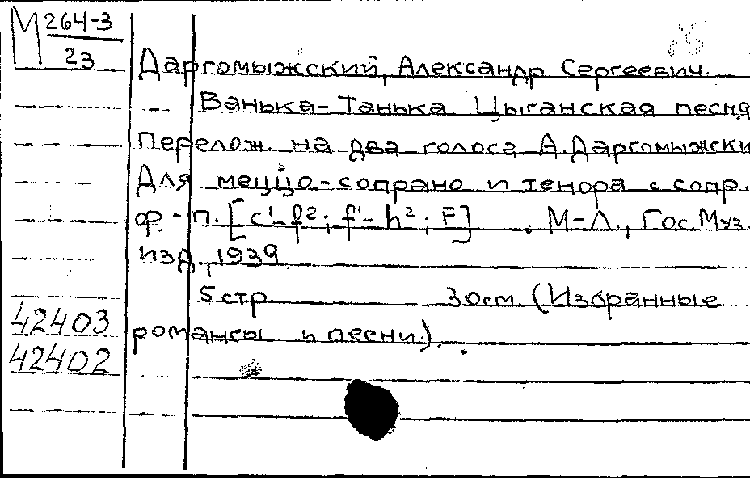 М 264-3
23
Даргомыжский, Александр Сергеевич.
Ванька-Танька Цыганская песня
Перелож. на два голоса А. Даргомыжски
Для меццо-сопрано и тенора с сопр.
ф.-п. [c¹-f²; f¹-h²; F] . М-Л., Гос. Муз.
изд., 1939
5 стр 30см. (Избранные
42403 романсы и песни.).
42402